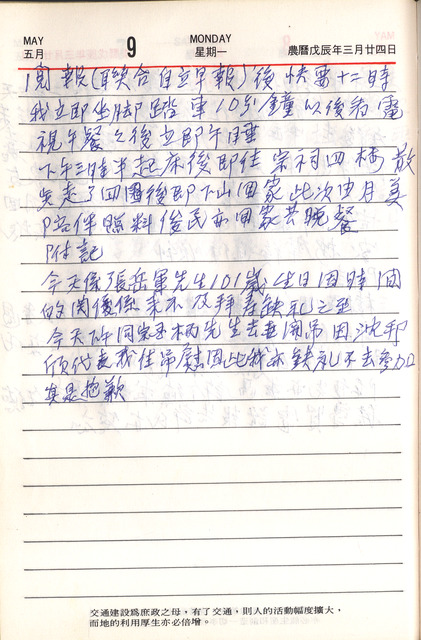 MAY
五月
9
MONDAY
星期一
農曆戊辰年三月廿四日
閱報(聯合自立早報)後快要十二時
我立即坐腳踏車10分鐘以後看電
視午餐之後立即午睡
下午三時半起床後即往宗祠四樓散
走了四圈後即下山回家此次由月美
陪伴照料俊民亦回家共晚餐
附記
今天係張岳軍先生101歲生日因時間
的關係未及拜壽缺禮之至
今天許同宗先生去弔因沈邦
頎代表我往弔慰因此我亦缺禮不去參加
真是抱歉
交通建設爲庶政之母，有了交通，則人的活動幅度擴大，
而地的利用厚生亦必倍增。